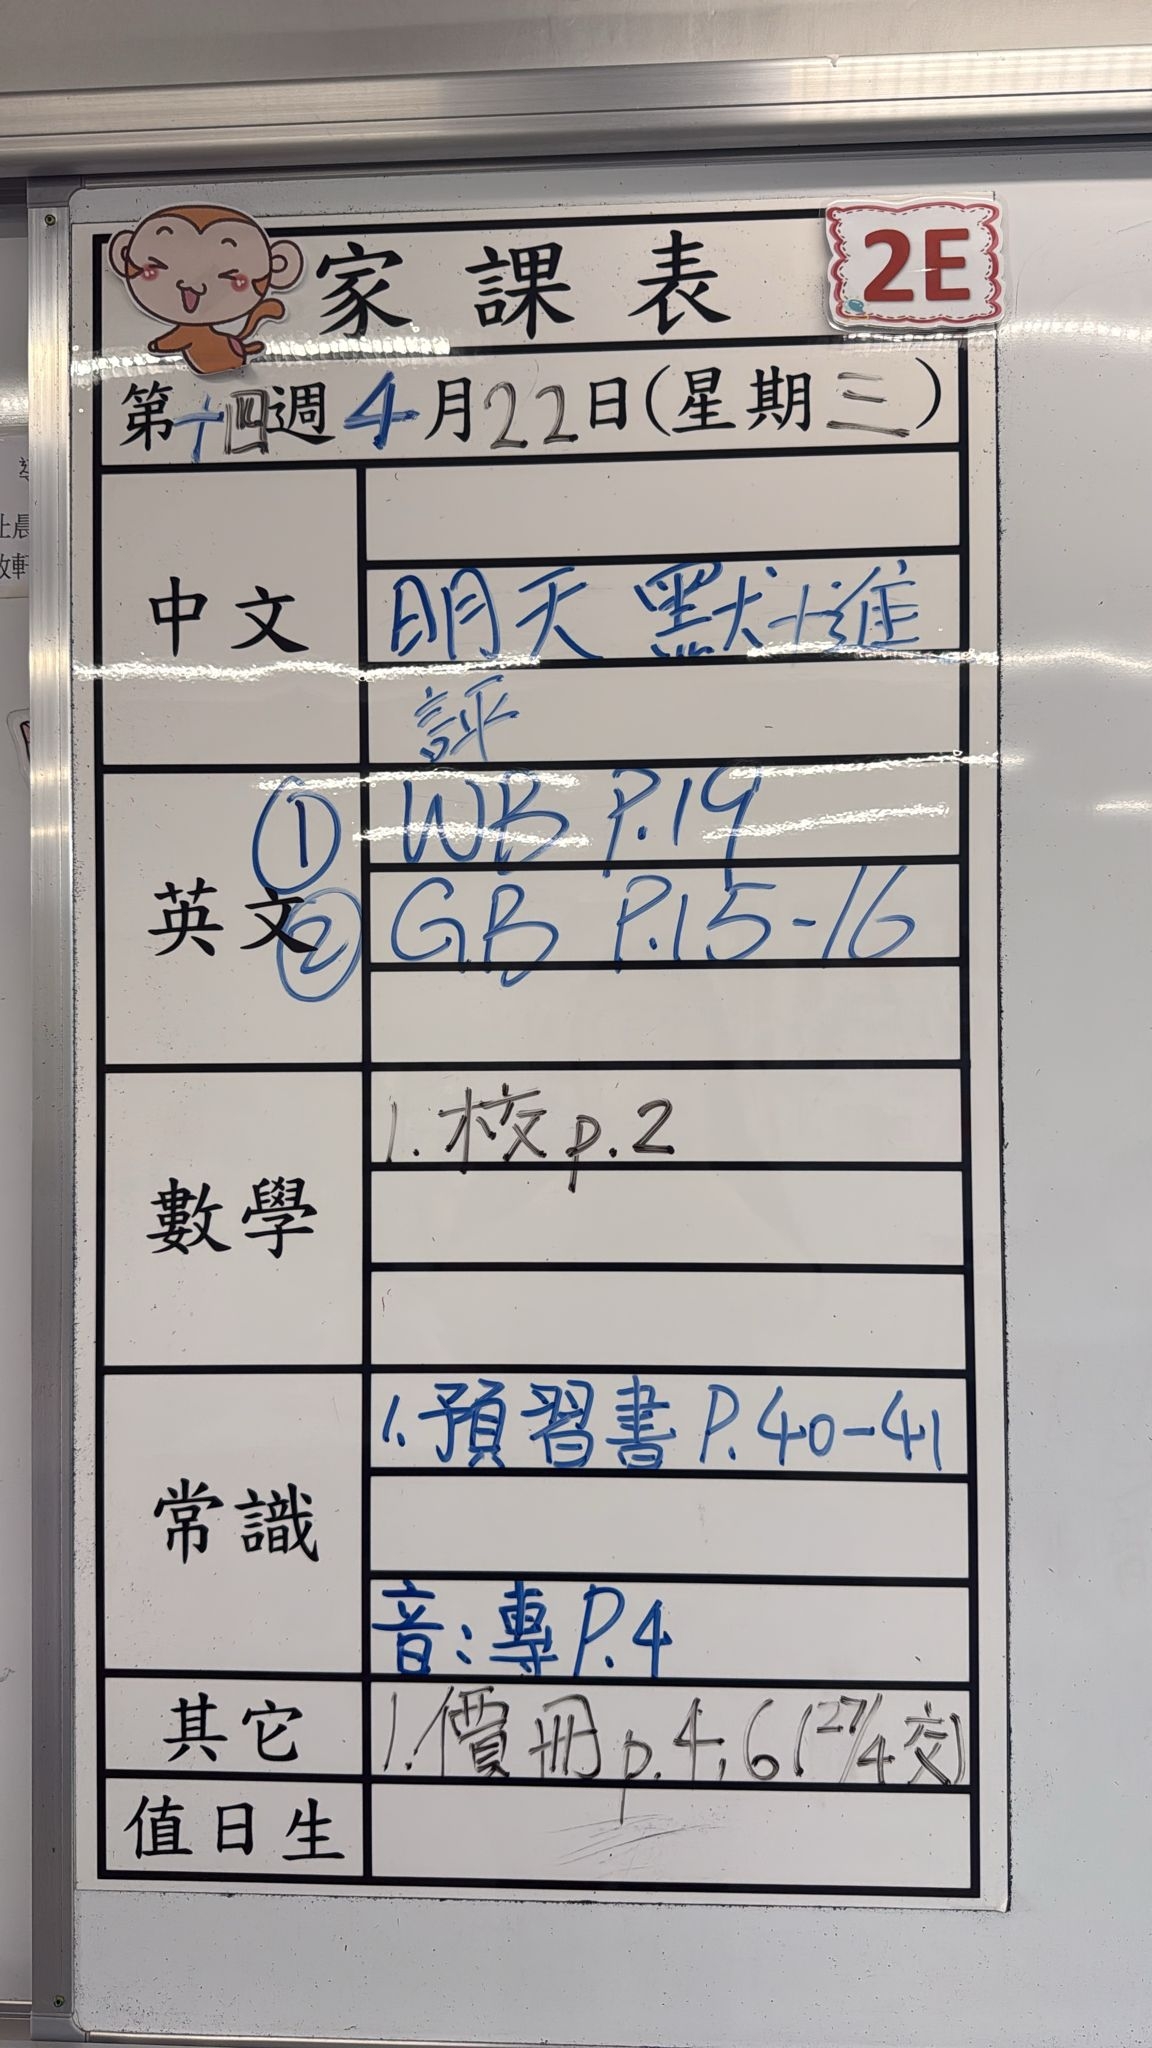 家課表
2E
第十四週4月22日(星期三)
中文
明天 默十進
評
英文
① WB P.19
② GB P.15-16
數學
1. 校 p.2
常識
1. 預習書 P.40-41
音:專P.4
其它
1. 價冊 p.4,6 (27/4交)
值日生